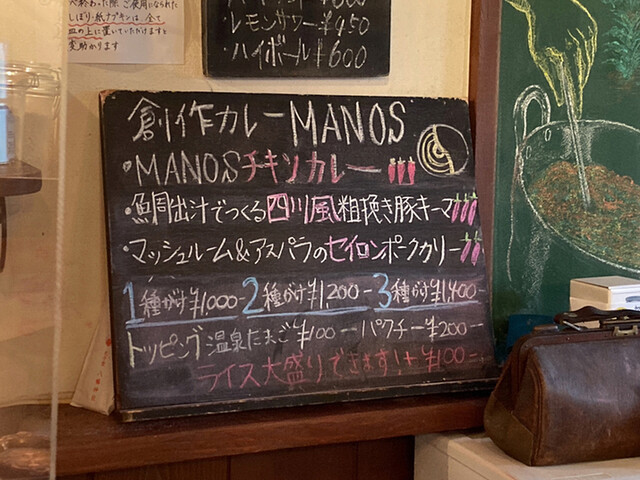 べ終わった際、ご使用になられた
しぼり・紙ナプキンは、全て
皿の上に置いていただけますと
変助かります
レモンサワー ¥450
・ハイボール ¥600
創作カレーMANOS
・MANOSチキンカレー
・鯛出汁でつくる四川風粗挽き豚キーマ
・マッシュルーム&アスパラのセイロンポークカリー
1種がけ¥1,000- 2種がけ¥1200- 3種がけ¥1,400-
トッピング 温泉たまご¥100- パクチー¥200-
ライス大盛りできます!+¥100-